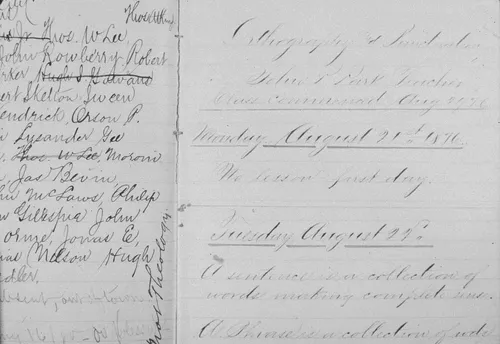 Thos W Lee
Jr Thos. W Lee
John Rowberry, Robert
Hugh S Gowans
Skelton, Owen
Orson P.
Lysander Gee
Thos. W Lee, Moroni
Jas Bevin
McLaws, Philip
Gillespie John
Orme, Jonas E,
Nelson Hugh
Theology
Orthography &
John R Park Teacher
Class commenced Aug 22
Monday August 21st 1876.
No lesson first day.
Tuesday August 22d.
A sentence is a collection of
words making complete sense.
A Phrase is a collection of